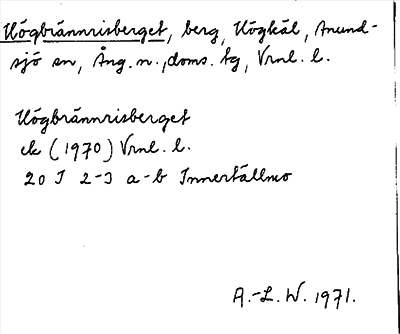 Högbrännrisberget, berg, Högkäl, Anund-
sjö sn, Ång. n., doms. tg, Vrnl. l.
Högbrännrisberget
ek (1970) Vrnl. l.
20 I 2-3 a-b Innertällmo
A.-L. W. 1971.